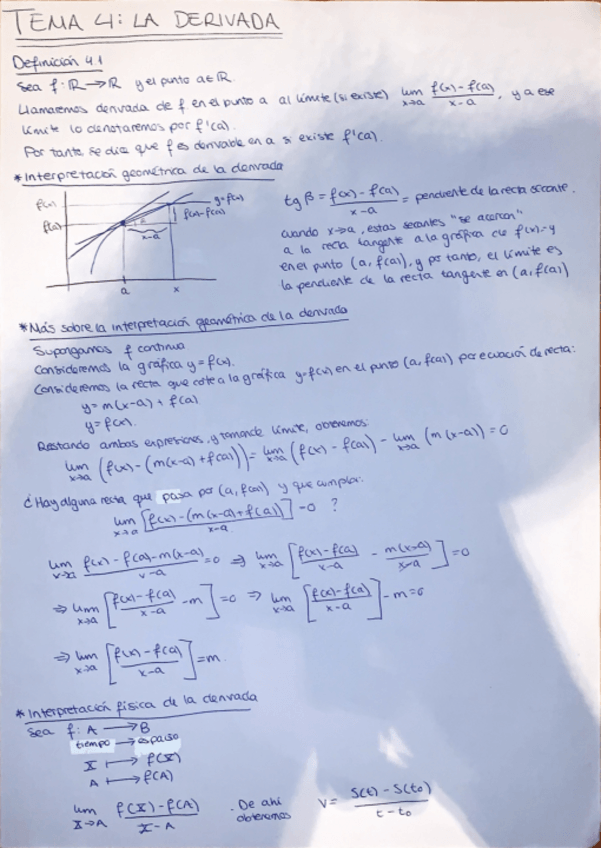 TEMA 4: LA DERIVADA
Definición 4.1
Sea f: ℝ → ℝ y el punto a ∈ ℝ.
Llamaremos derivada de f en el punto a al límite (si existe) lim x→a (f(x) - f(a))/(x-a), y a ese
límite lo denotaremos por f'(a).
Por tanto se dice que f es derivable en a si existe f'(a).
* Interpretación geométrica de la derivada
f(x)
f(a)
y=f(x)
f(x)-f(a)
x-a
a x
tg β = (f(x) - f(a))/(x-a) = pendiente de la recta secante.
cuando x→a, estas secantes "se acercan"
a la recta tangente a la gráfica de f(x)=y
en el punto (a, f(a)), y por tanto, el límite es
la pendiente de la recta tangente en (a, f(a))
* Más sobre la interpretación geométrica de la derivada
Supongamos f continua
Consideremos la gráfica y=f(x).
Consideremos la recta que corte a la gráfica y=f(x) en el punto (a, f(a)) por ecuación de recta:
y= m(x-a) + f(a)
y= f(x).
Restando ambas expresiones, y tomando límite, obtenemos:
lim x→a (f(x) - (m(x-a) + f(a))) = lim x→a (f(x) - f(a)) - lim x→a (m(x-a)) = 0
¿Hay alguna recta que pasa por (a, f(a)) y que cumpla:
lim x→a [f(x) - (m(x-a) + f(a))]/(x-a) = 0 ?
lim x→a (f(x) - f(a) - m(x-a))/(x-a) = 0 ⇒ lim x→a [(f(x) - f(a))/(x-a) - m(x-a)/(x-a)] = 0
⇒ lim x→a [(f(x) - f(a))/(x-a) - m] = 0 ⇒ lim x→a [(f(x) - f(a))/(x-a)] - m = 0
⇒ lim x→a [(f(x) - f(a))/(x-a)] = m.
* Interpretación física de la derivada
Sea f: A → B
tiempo → espacio
X ↦ f(X)
A ↦ f(A)
lim X→A (f(X) - f(A))/(X-A) . De ahí obtenemos V = (S(t) - S(t₀))/(t - t₀)